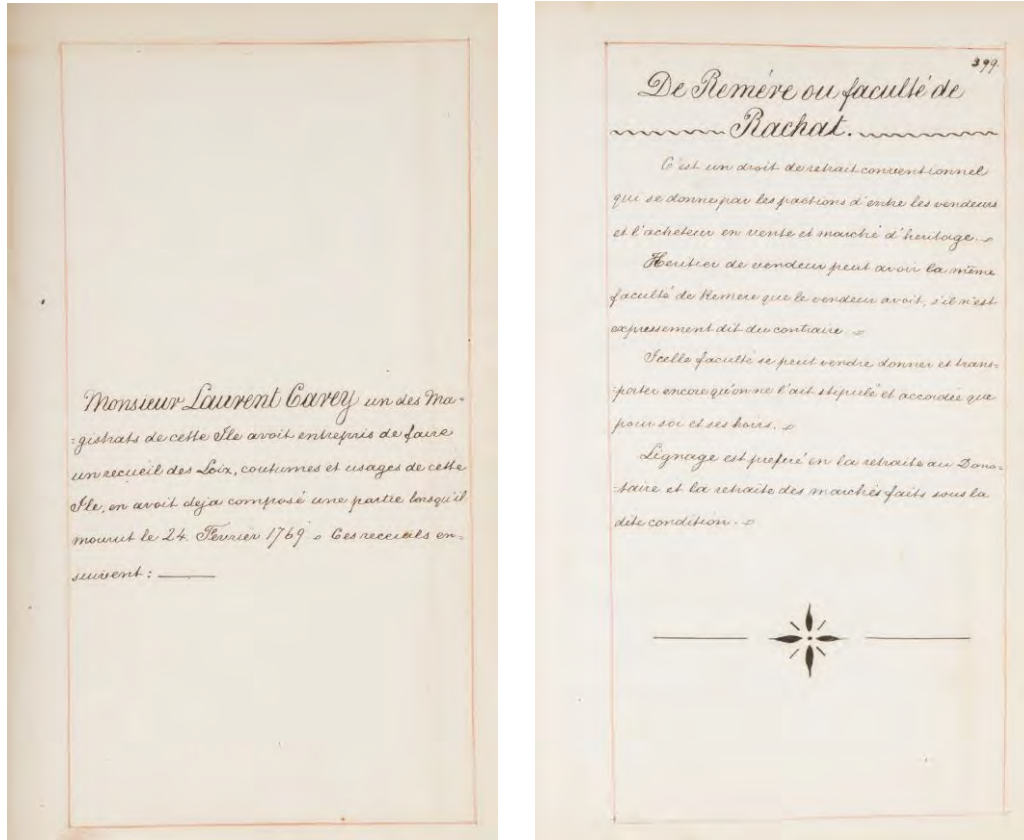 Monsieur Laurent Carey un des Ma-
-gistrats de cette Ile avoit entrepris de faire
un recueil des Loix, coutumes et usages de cette
Ile, en avoit deja composé une partie lorsqu'il
mourut le 24 Fevrier 1769. Ces receuils en-
suivent :
399.
De Remére ou faculté de
Rachat.
C'est un droit de retrait conventionnel
qui se donne par les pactions d'entre les vendeurs
et l'acheteur en vente et marché d'heritage.
Heritier de vendeur peut avoir la même
faculté de Remere que le vendeur avoit, s'il n'est
expressement dit du contraire.
Icelle faculté se peut vendre donner et trans-
-porter encore qu'on ne l'ait stipulé et accordée que
pour soi et ses hoirs.
Lignage est preferé en la retraite au Dona-
-taire et la retraite des marchés faits sous la
dite condition.